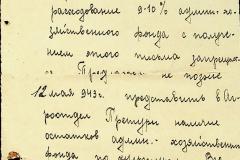 расходование 9-10% админ. хо-
зяйственного фонда с получе-
нием этого письма запреща-
Предлагаю не позже
12 мая 943г. представить в Аг-
роотдел Претуры наличие
остатков админ. хозяйственн
фонда по